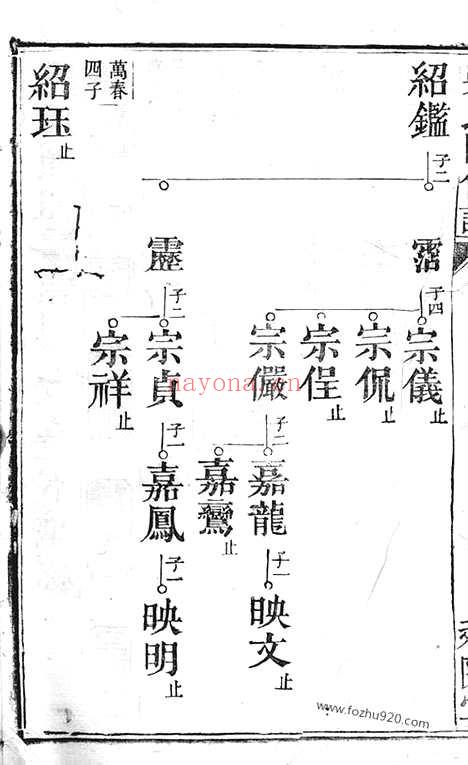 紹鑑 子二
霑 子四
宗儀 止
宗侃 止
宗侱 止
宗儼 子二
嘉龍 子一
映文 止
嘉鸞 止
靈 子二
宗貞 子一
嘉鳳 子一
映明 止
宗祥 止
萬春
四子
紹珏 止
nayona.cn
www.fozhu920.com